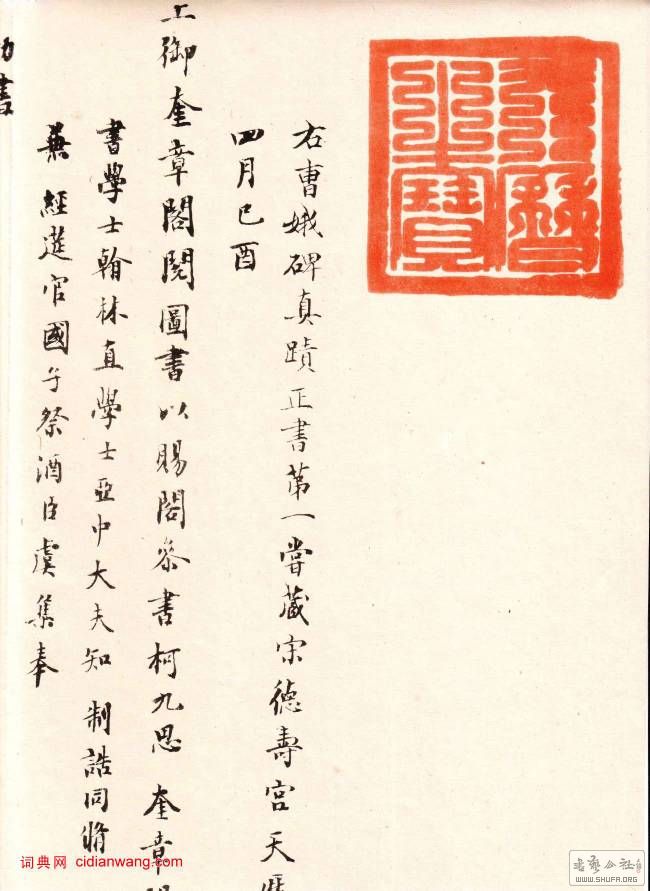 天曆之寶
右曹娥碑真蹟正書第一嘗藏宋德壽宮天曆
四月己酉
上御奎章閣閱圖書以賜閣參書柯九思 奎章閣
書學士翰林直學士亞中大夫知 制誥同脩
兼經筵官國子祭酒臣虞集奉
勅書
词典网 cidianwang.com
书艺公社
WWW.SHUFA.ORG